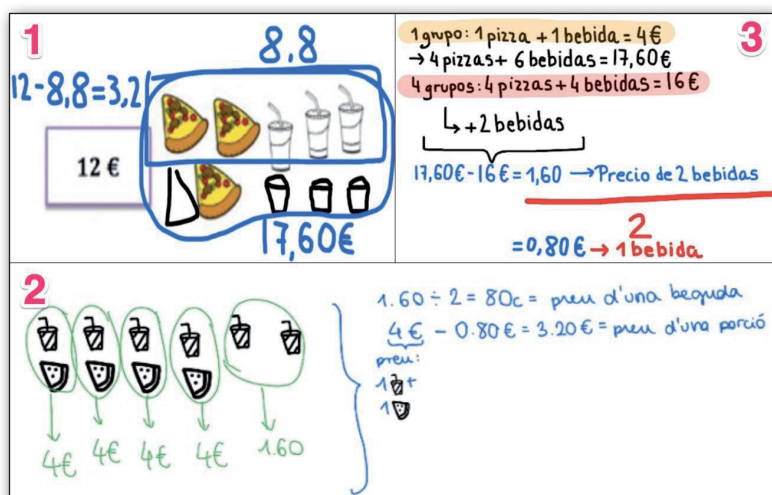 1
8,8
12-8,8=3,2
12 €
17,60€
3
1 grupo: 1 pizza + 1 bebida = 4€
→ 4 pizzas + 6 bebidas = 17,60€
4 grupos: 4 pizzas + 4 bebidas = 16€
↳ +2 bebidas
17,60€ - 16€ = 1,60 → Precio de 2 bebidas
2
= 0,80€ → 1 bebida
2
4€ 4€ 4€ 4€ 1.60
1.60 ÷ 2 = 80c = preu d'una beguda
4€ - 0.80€ = 3.20€ = preu d'una porció
preu:
1 +
1